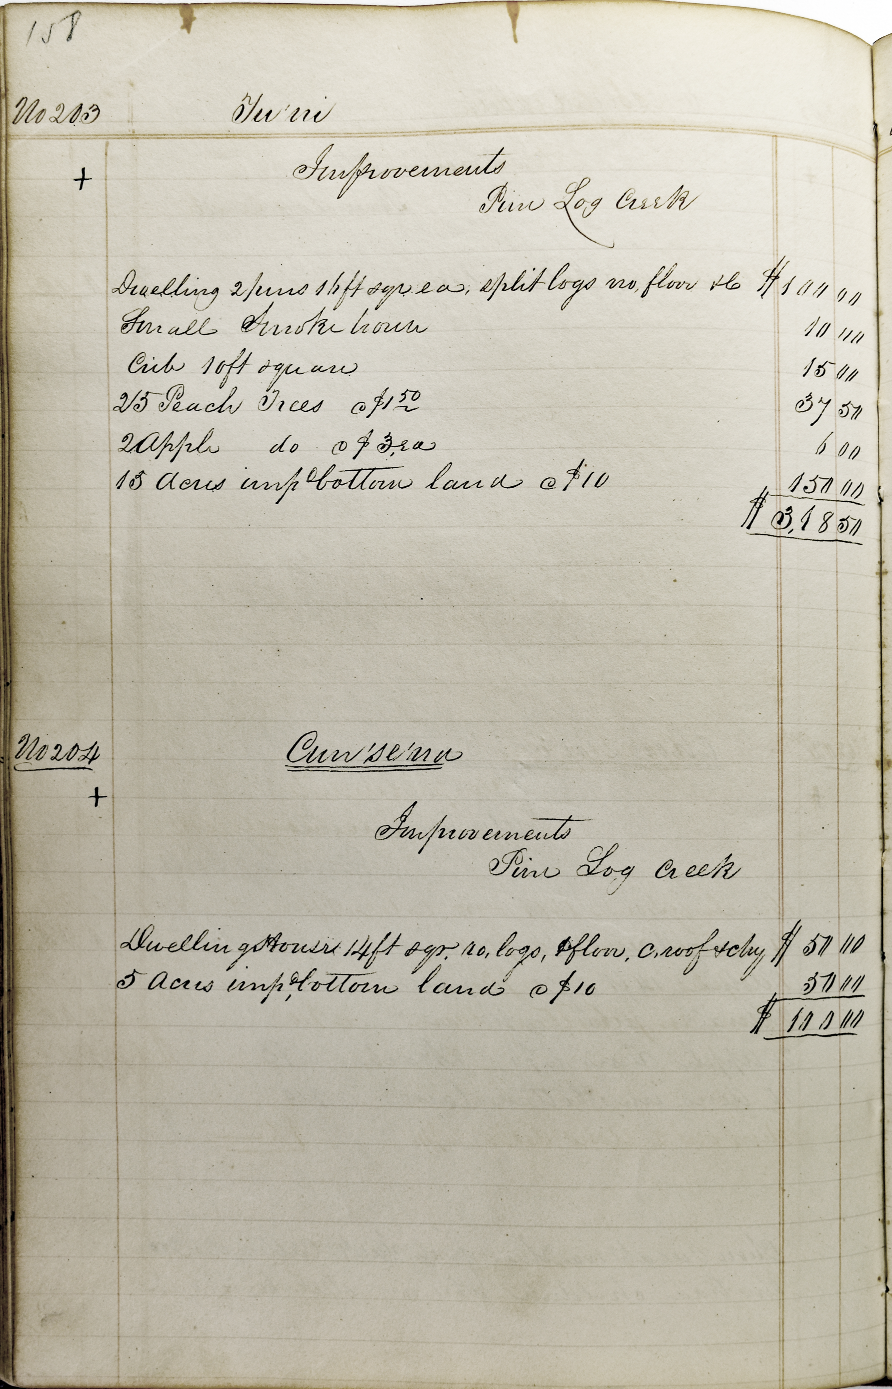 158
No 203 Tu'ni
+ Improvements
Pine Log Creek
Dwelling 2 pens 16 ft sqr ea, split logs no, floor &c $100 00
Small Smoke house 10 00
Crib 10 ft square 15 00
25 Peach Trees @ $1 50 37 50
2 Apple do @ $3, ea 6 00
15 Acres impd bottom land @ $10 150 00
$ 3,18 50
No 204 Cun'se'na
+
Improvements
Pine Log Creek
Dwelling House 14 ft sqr. ro, logs, floor, c. roof & chy $ 50 00
5 Acres impd, bottom land @ $10 50 00
$ 100 00